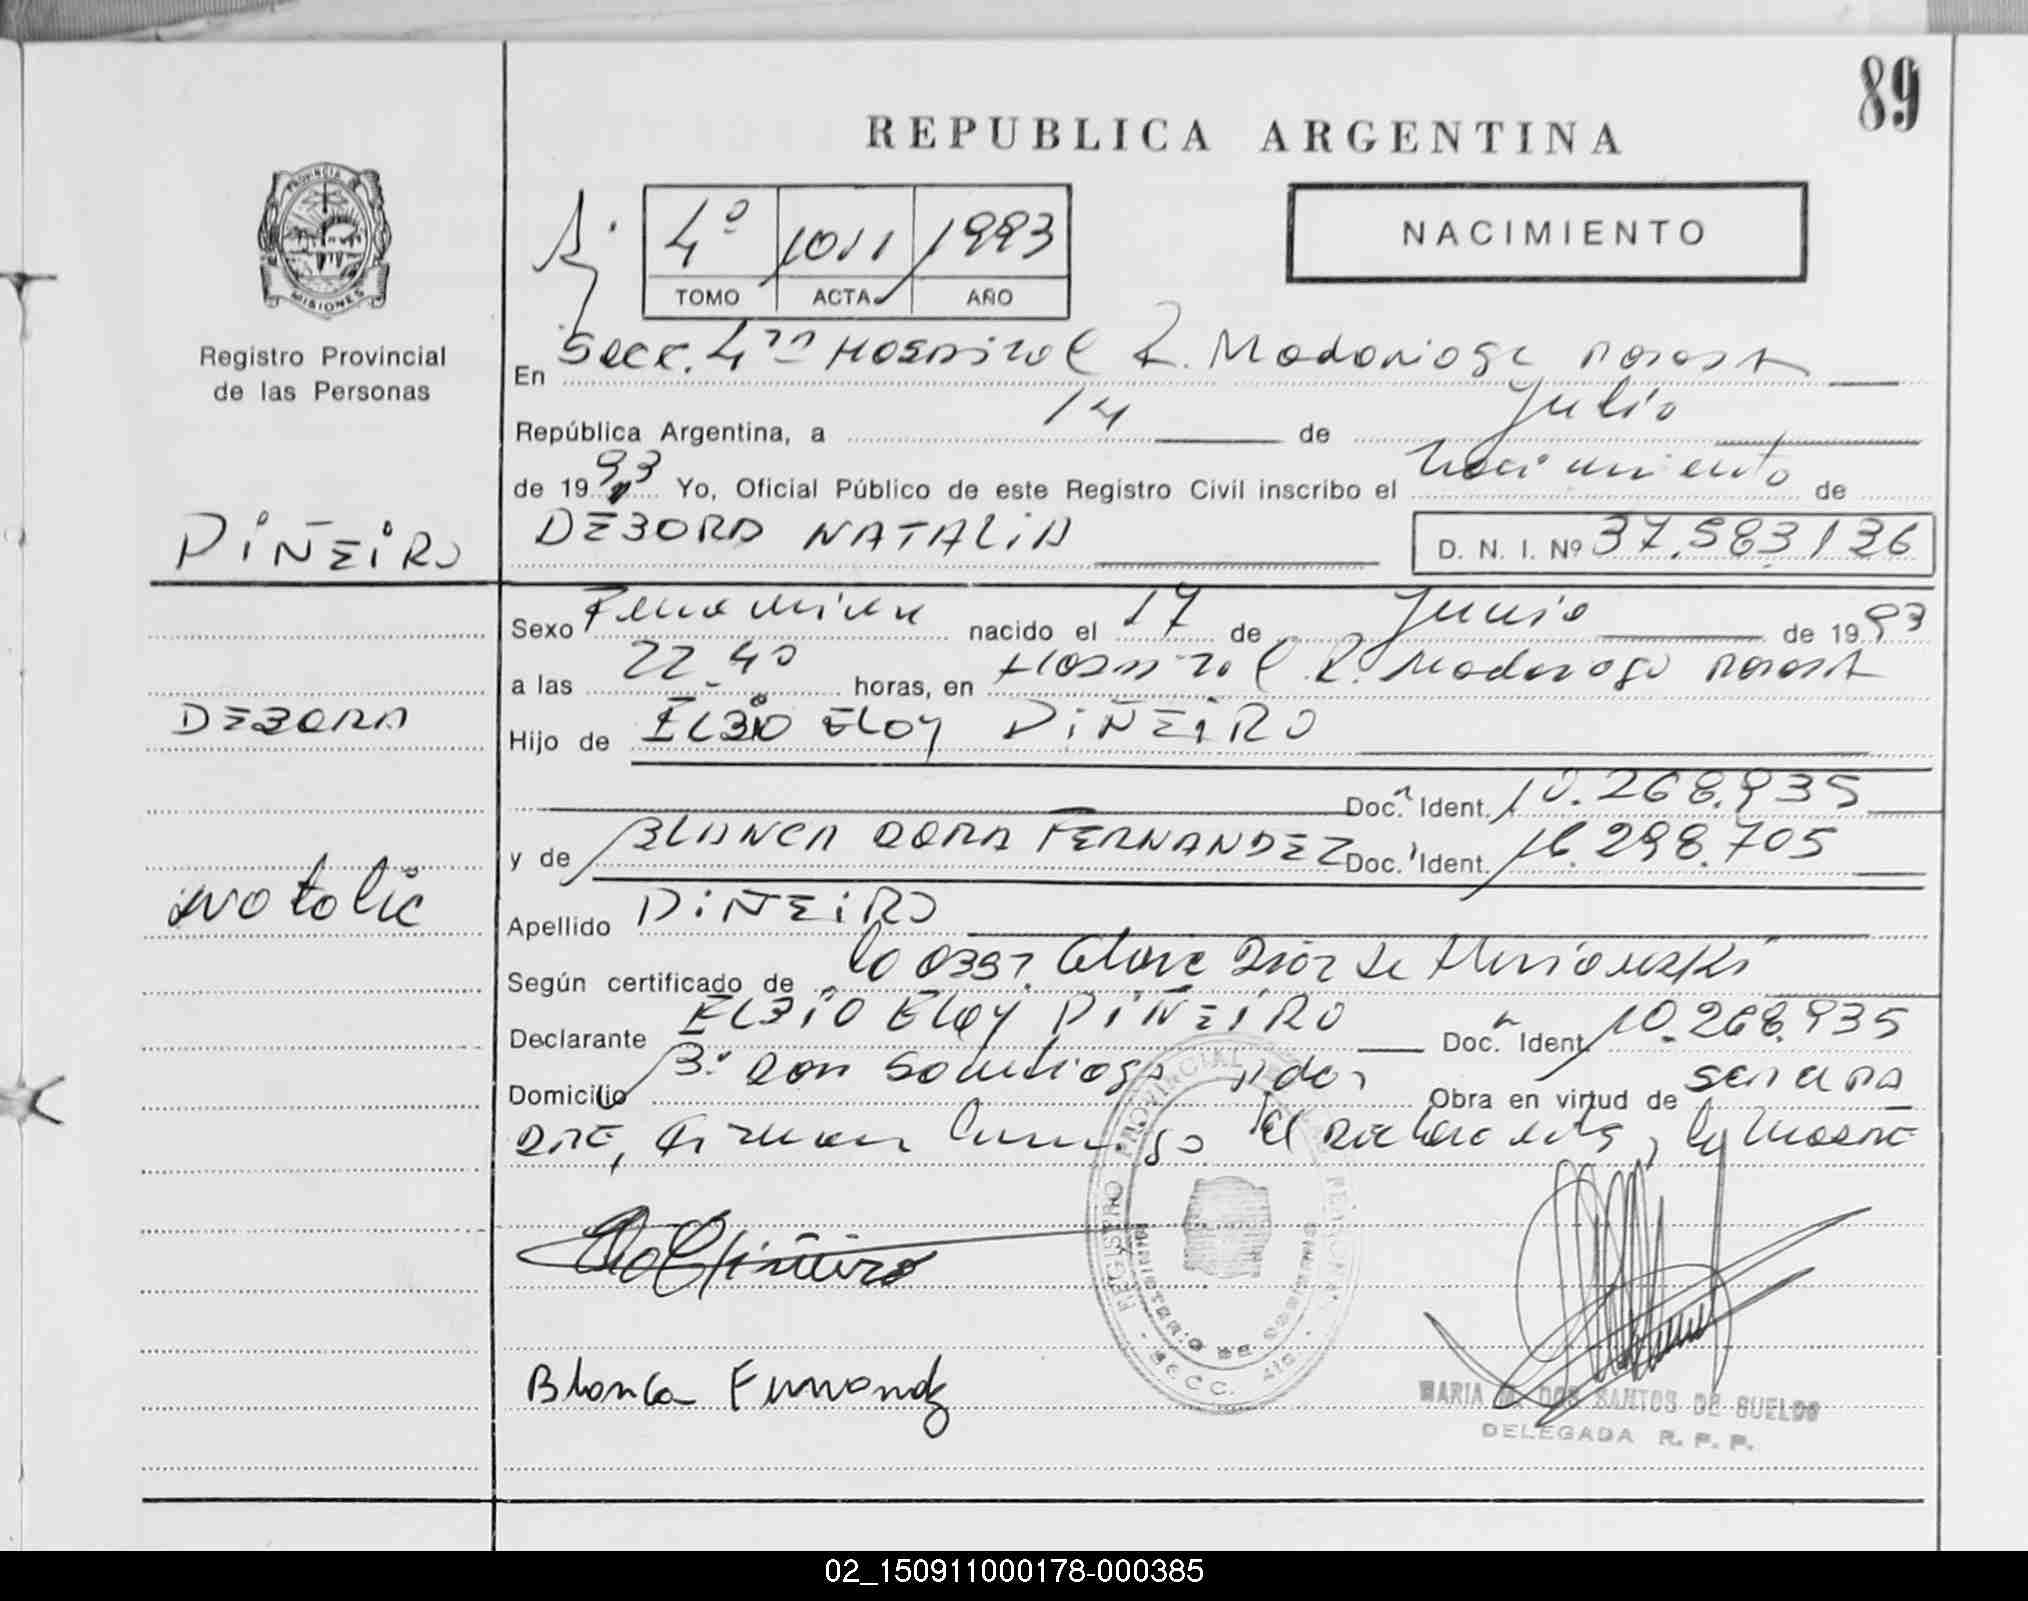 89
REPUBLICA ARGENTINA
PROVINCIA DE
MISIONES
Registro Provincial
de las Personas
4º 1011 1993
TOMO ACTA AÑO
NACIMIENTO
En Secc. 4ta Hospital R. Madariaga
República Argentina, a 14 de Julio
de 1993 Yo, Oficial Público de este Registro Civil inscribo el Nacimiento de
PIÑEIRO
DEBORA NATALIA D. N. I. Nº 37.583.136
Sexo Femenino nacido el 17 de Junio de 1993
a las 22_40 horas, en Hospital R. Madariaga
DEBORA
Hijo de ELBIO ELOY PIÑEIRO
Doc. Ident. 10.268.935
y de BLANCA DORA FERNANDEZ Doc. Ident. 16.298.705
Natalia
Apellido PIÑEIRO
Según certificado de la Obst.
Declarante ELBIO ELOY PIÑEIRO Doc. Ident. 10.268.935
Domicilio Bº Don Santiago Pdas Obra en virtud de ser el PA
DRE, firman conmigo el declarante y la MADRE
Piñeiro
Blanca Fernandz
REGISTRO PROVINCIAL DE LAS PERSONAS
MINISTERIO DE GOBIERNO
SECC. 4ta
MARIA M. DOS SANTOS DE SUELDO
DELEGADA R. P. P.
02_150911000178-000385